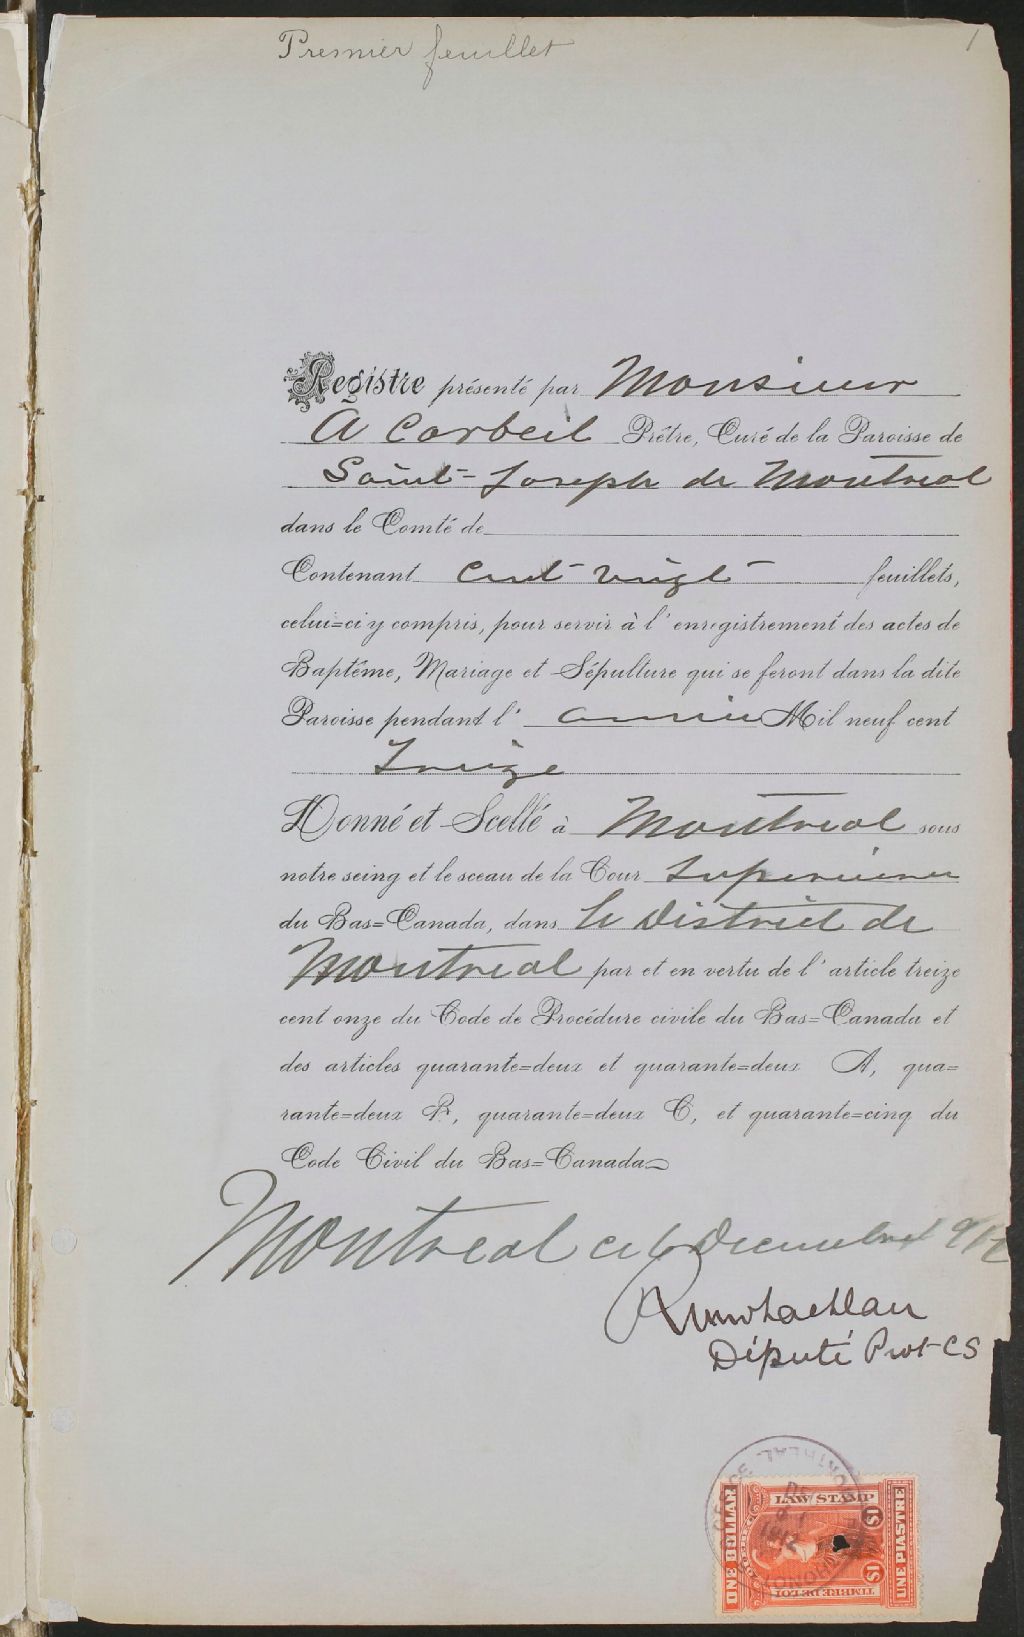 Premier feuillet
1
Registre présenté par Monsieur
A Corbeil Prêtre, Curé de la Paroisse de
Saint-Joseph de Montreal
dans le Comté de
Contenant cent vingt feuillets,
celui=ci y compris, pour servir à l'enregistrement des actes de
Baptême, Mariage et Sépulture qui se feront dans la dite
Paroisse pendant l' année Mil neuf cent
Treize
Donné et Scellé à Montreal sous
notre seing et le sceau de la Cour Superieure
du Bas=Canada, dans le District de
Montreal par et en vertu de l'article treize
cent onze du Code de Procédure civile du Bas=Canada et
des articles quarante=deux et quarante=deux A, qua=
rante=deux B, quarante=deux C, et quarante=cinq du
Code Civil du Bas=Canada
Montreal ce 6 Decembre 1912
Député Prot CS
ONE DOLLAR
LAW STAMP
$1
$1
TIMBRE DE LOI
UNE PIASTRE